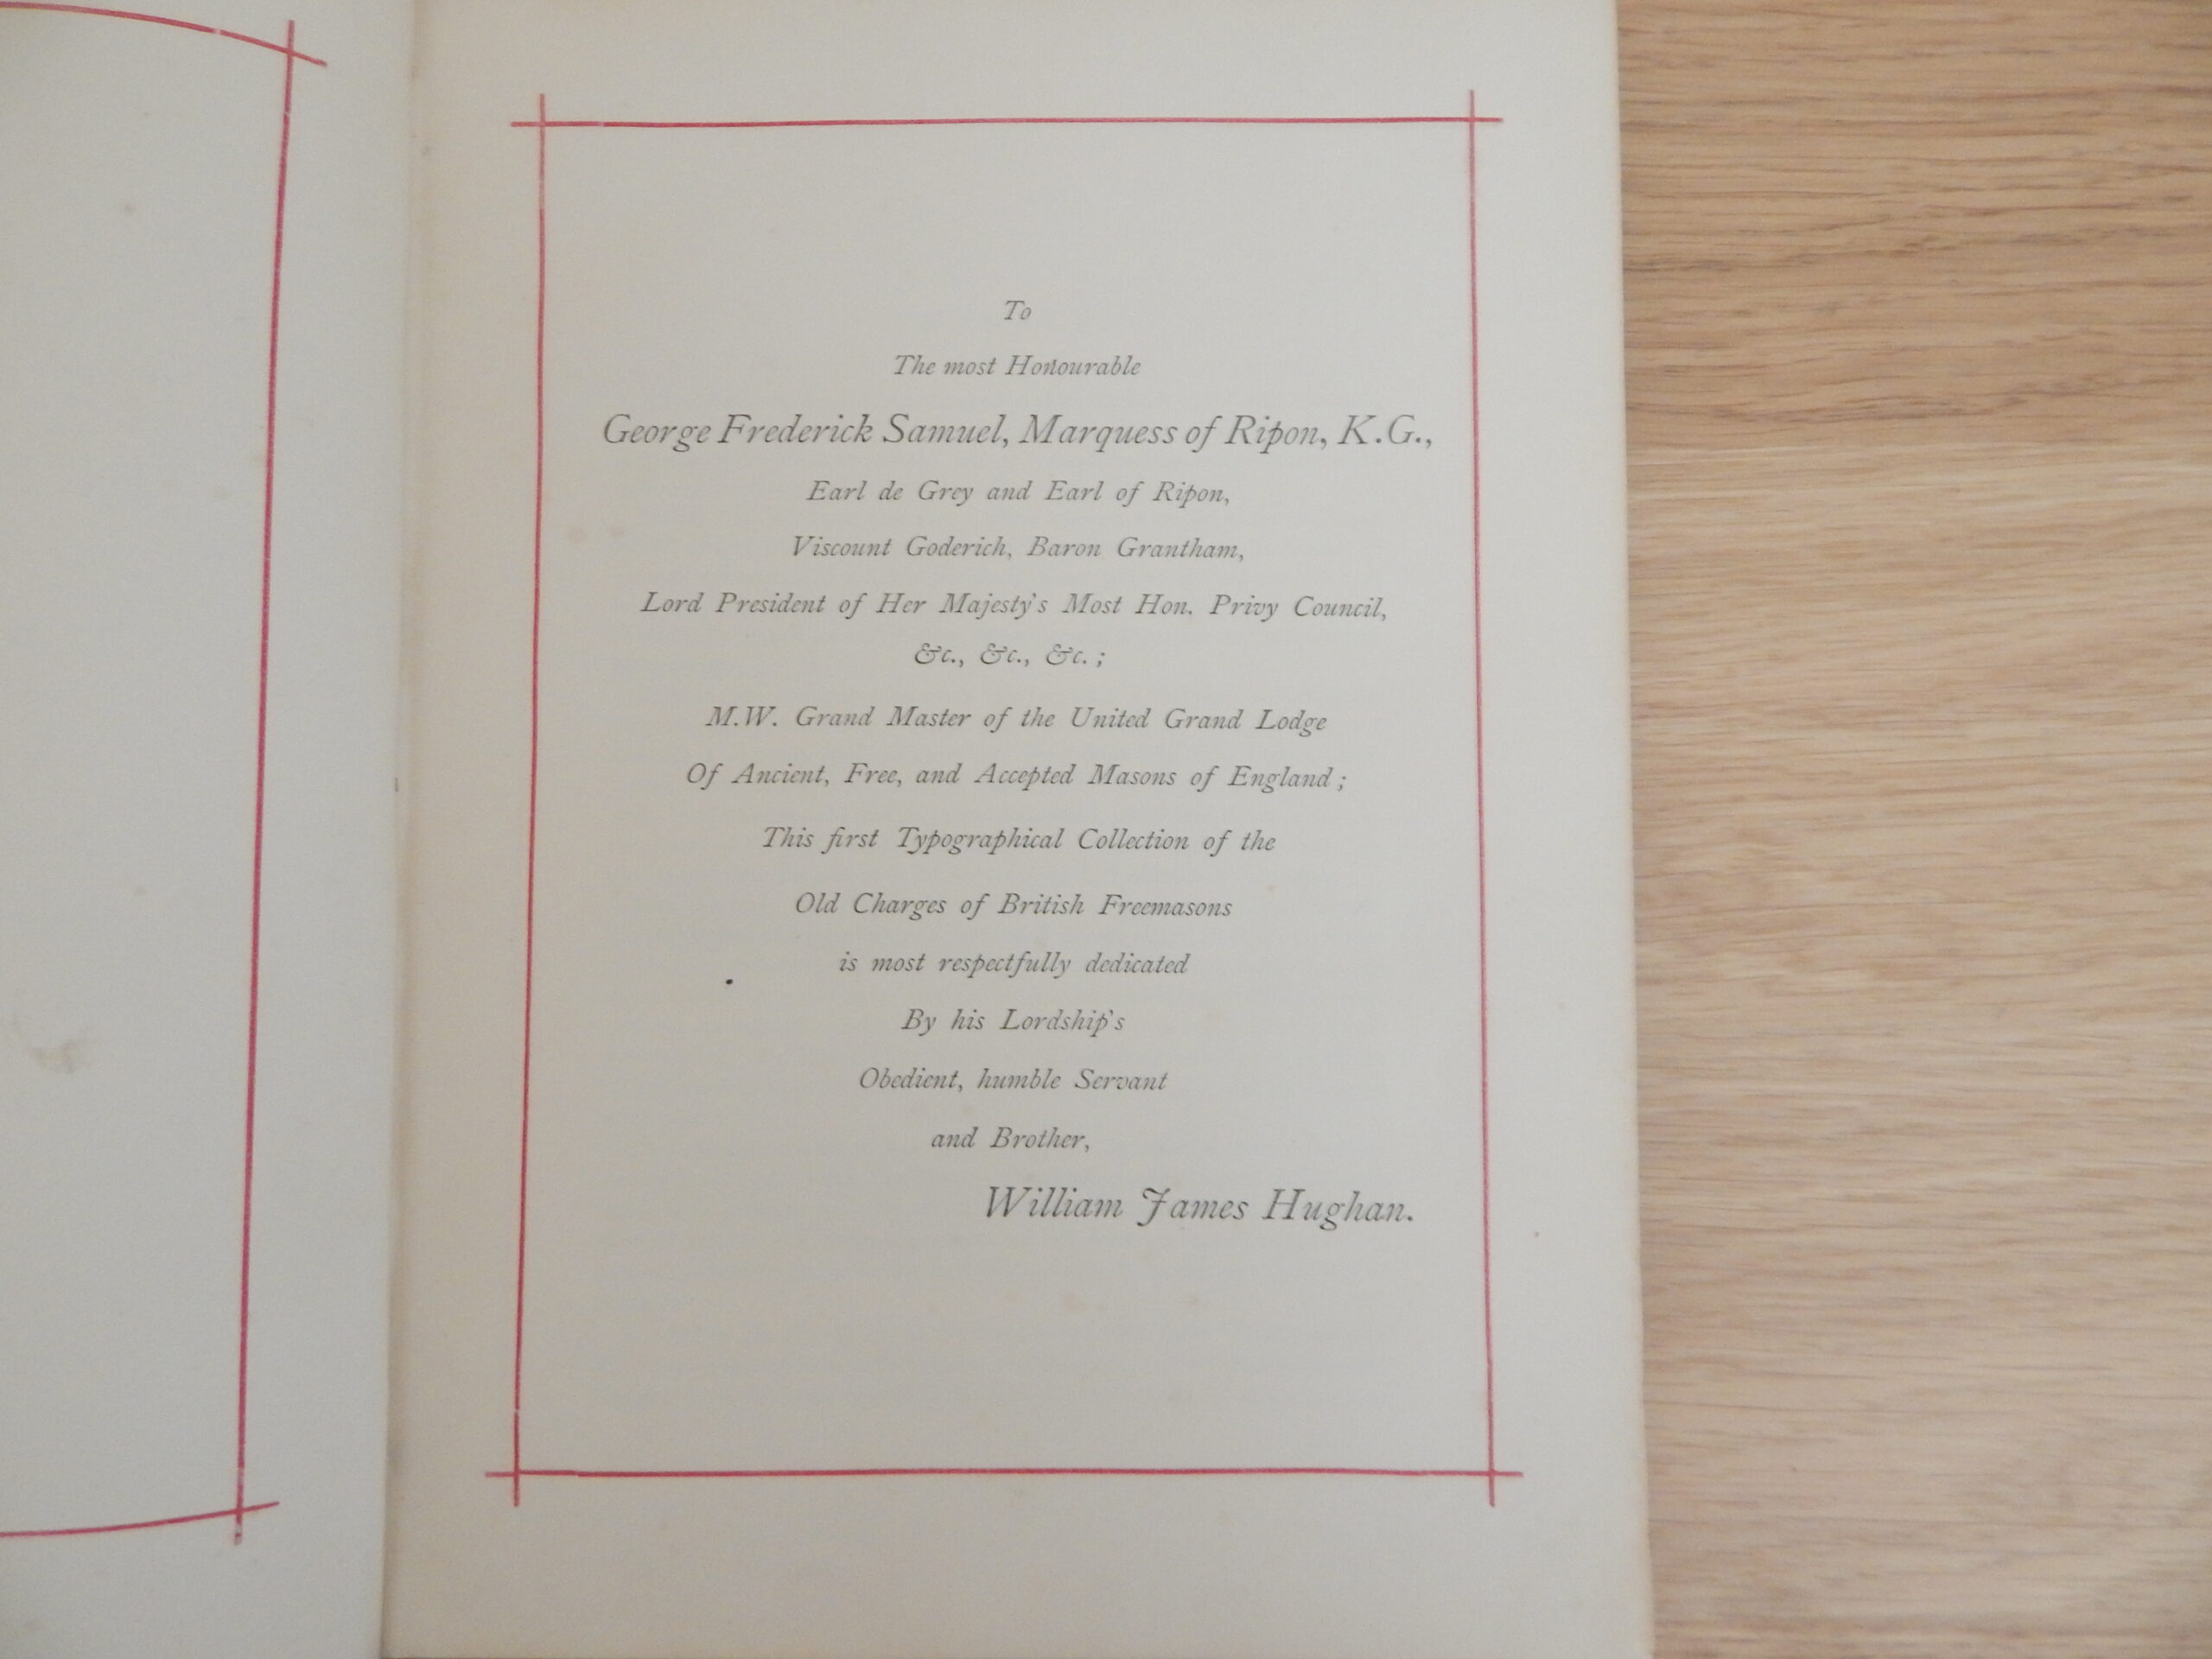 To
The most Honourable
George Frederick Samuel, Marquess of Ripon, K.G.,
Earl de Grey and Earl of Ripon,
Viscount Goderich, Baron Grantham,
Lord President of Her Majesty's Most Hon. Privy Council,
&c., &c., &c.;
M.W. Grand Master of the United Grand Lodge
Of Ancient, Free, and Accepted Masons of England;
This first Typographical Collection of the
Old Charges of British Freemasons
is most respectfully dedicated
By his Lordship's
Obedient, humble Servant
and Brother,
William James Hughan.